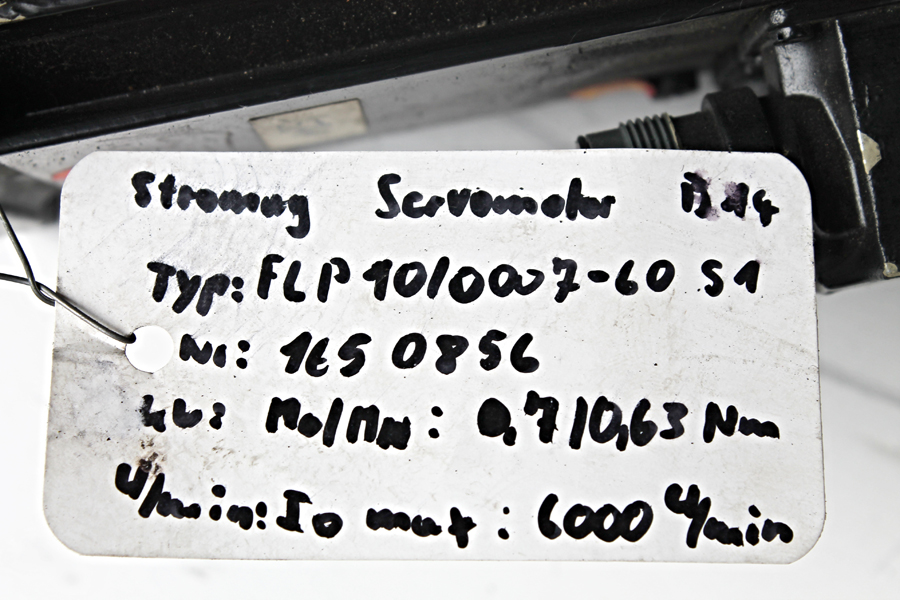 Stromag Servomotor B14
Typ: FLP 10/0007-60 S1
Nr: 165 0856
kW: Mo/MN: 0,7/0,63 Nm
U/min: Io max: 6000 U/min